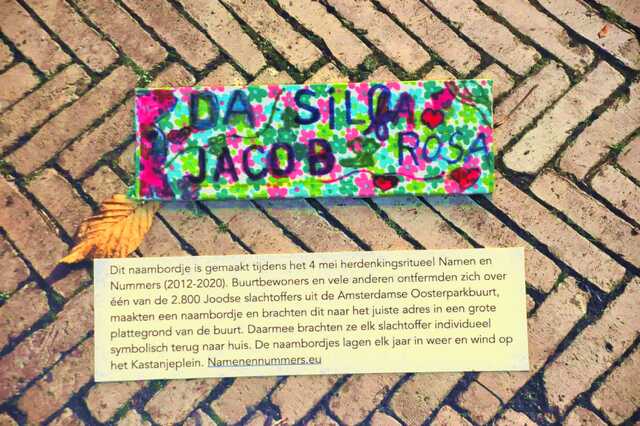 DA SILfA
JACOB ROSA
Dit naambordje is gemaakt tijdens het 4 mei herdenkingsritueel Namen en
Nummers (2012-2020). Buurtbewoners en vele anderen ontfermden zich over
één van de 2.800 Joodse slachtoffers uit de Amsterdamse Oosterparkbuurt,
maakten een naambordje en brachten dit naar het juiste adres in een grote
plattegrond van de buurt. Daarmee brachten ze elk slachtoffer individueel
symbolisch terug naar huis. De naambordjes lagen elk jaar in weer en wind op
het Kastanjeplein. Namenennummers.eu